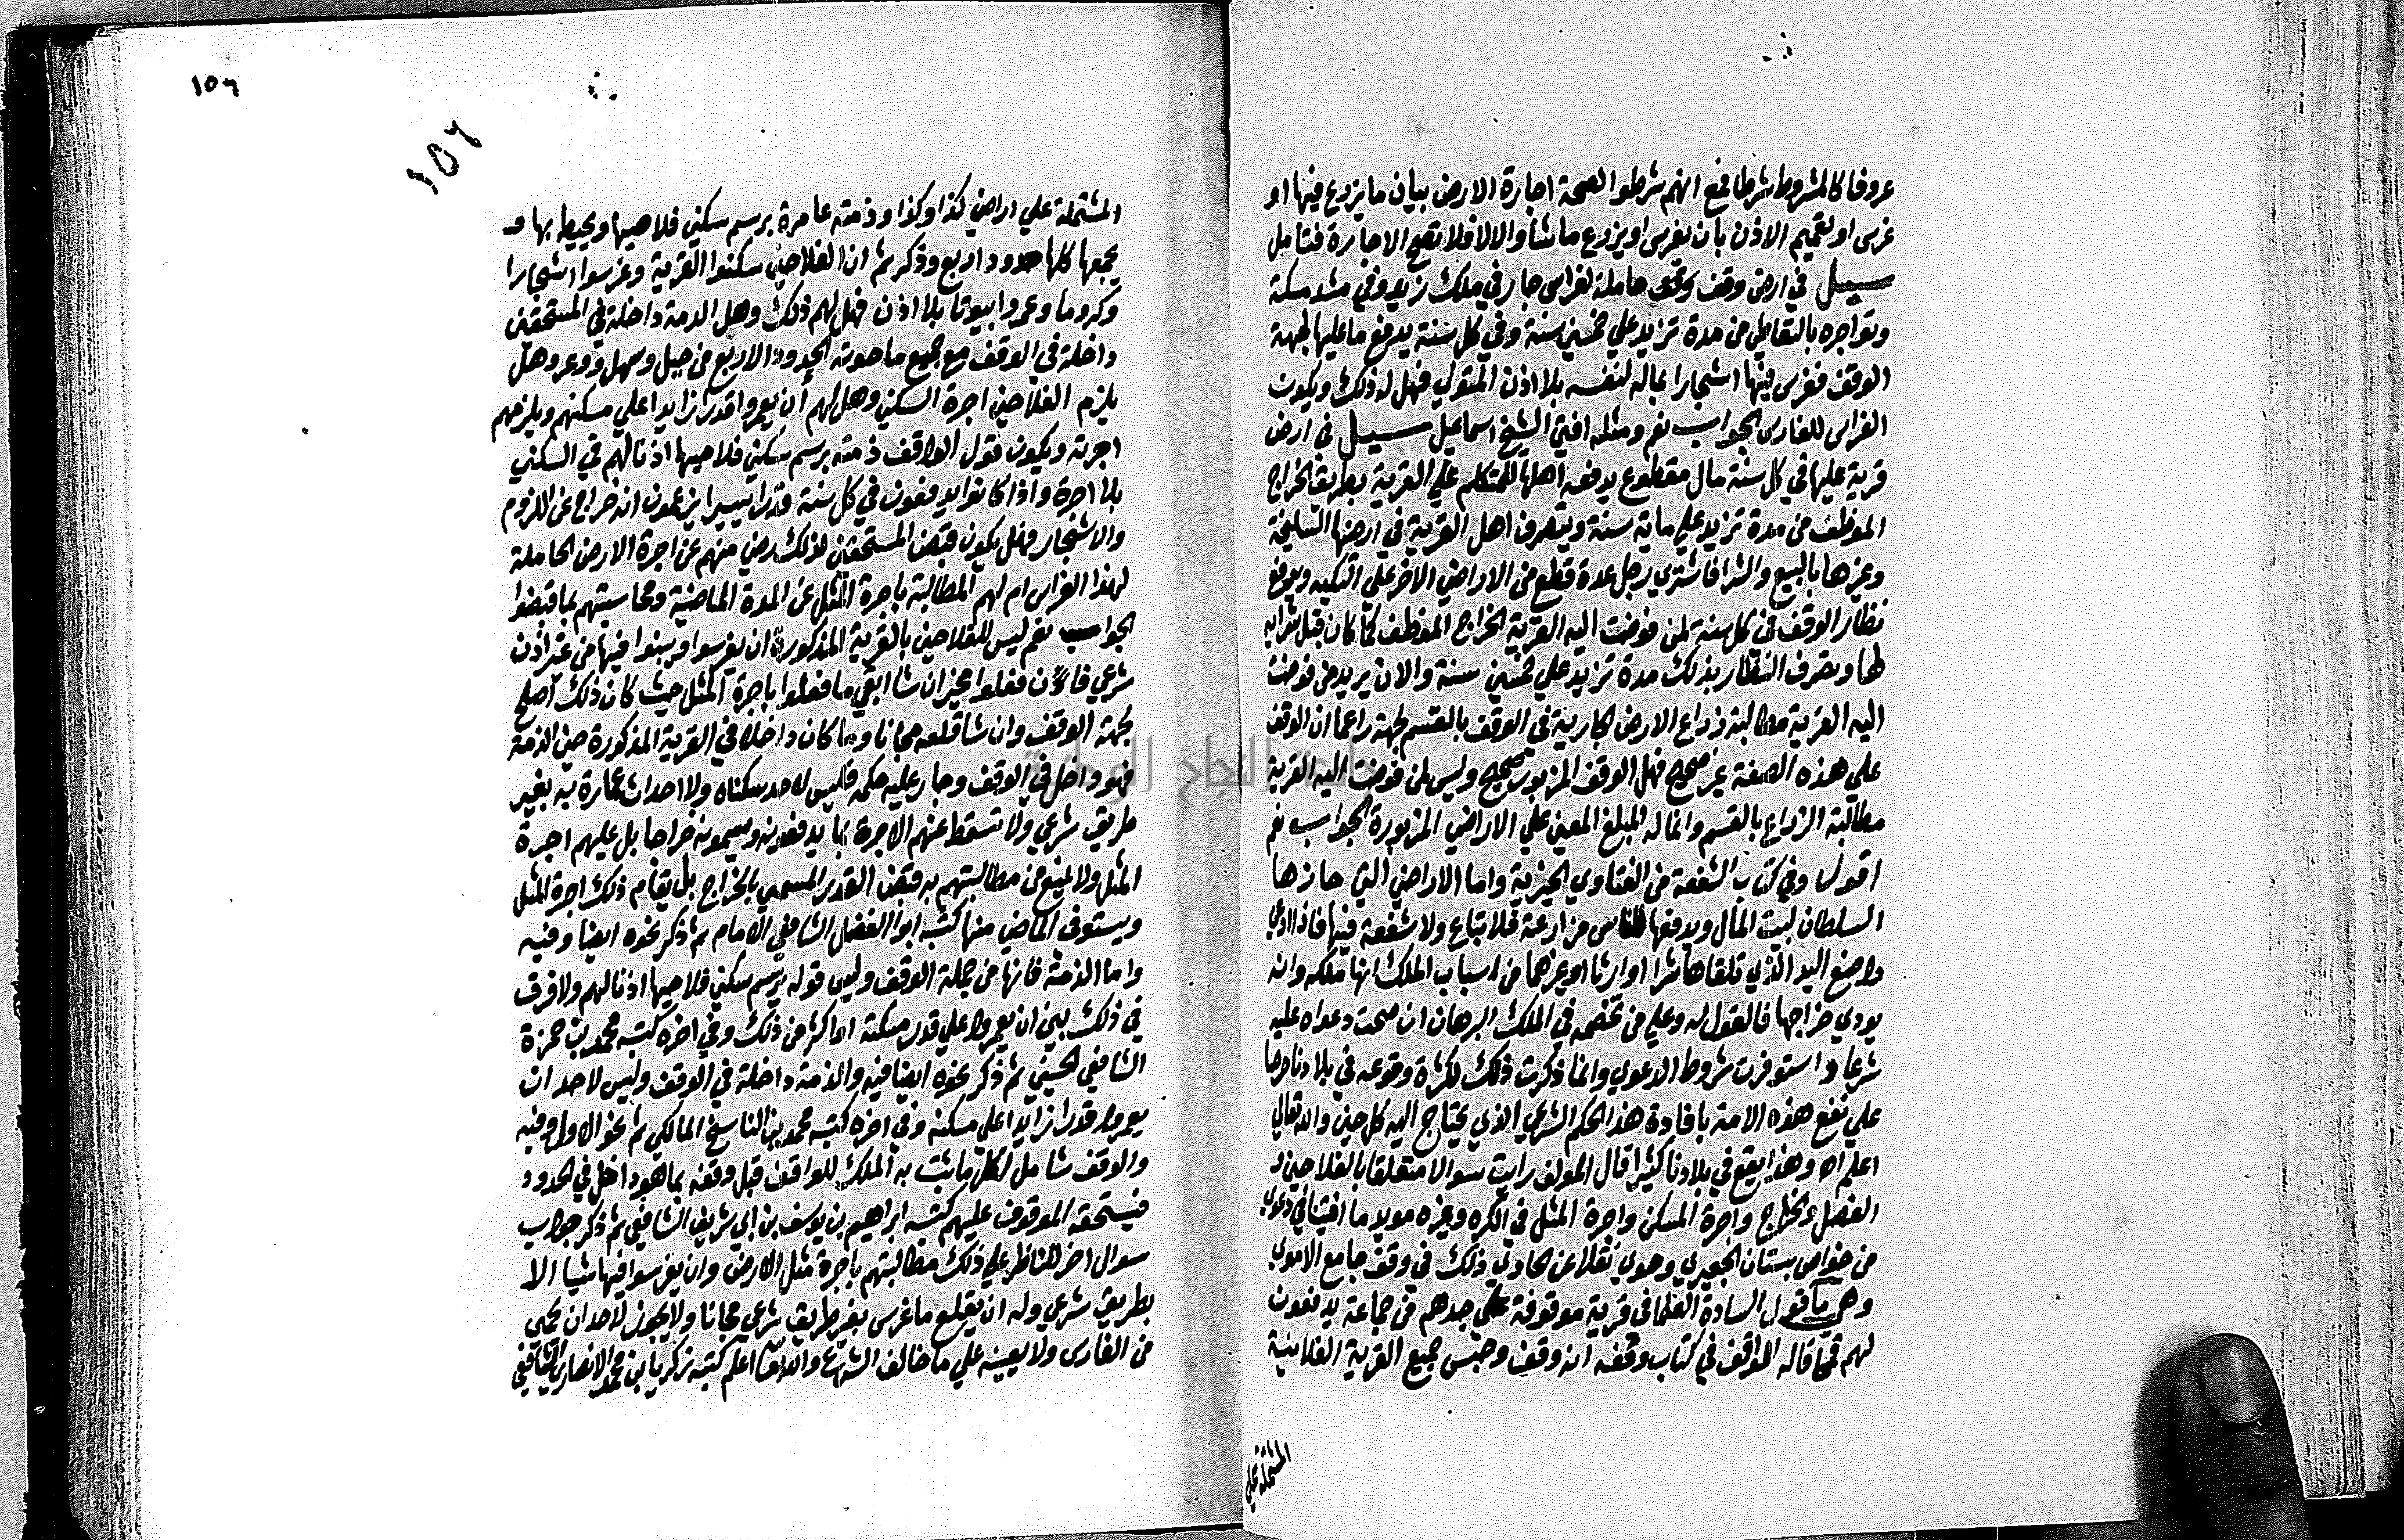 عروفا كالمشروط شرطا فمع انهم شرطوا لصحة اجارة الارض بيان ما يزرع فيها او
غرس او تعميم الاذن بان يغرس او يزرع ما شا والا فلا تصح الاجارة فتامل
سيل في ارض وقف حاملة لغراس جار في ملك زيد وفي مشد مسكة
وتواجره بالتعاطي من مدة تزيد علي خمسين سنة وفي كل سنة يدفع ما عليها لجهة
الوقف فغرس فيها اشجارا بماله لنفسه بلا اذن المتولي فهل له ذلك ويكون
الغراس للغارس الجواب نعم ومثله افتي الشيخ اسماعيل سيل في ارض
قرية عليها في كل سنة مال مقطوع يدفعه اهلها للمتكلم علي القرية بطريق الخراج
الموظف من مدة تزيد علي ماية سنة ويتصرف اهل القرية في ارضها السليخة
وغيرها بالبيع والشرا فاشتري رجل عدة قطع من الاراضي الاخر علي ويدفع
نظار الوقف في كل سنة لمن فوضت اليه القرية الخراج الموظف كما كان قبل شرايه
لها وتصرف النظار بذلك مدة تزيد علي خمسين سنة والان يريد من فوضت
اليه القرية مطالبة زراع الارض الجارية في الوقف بالقسم لجهة زاعما ان الوقف
علي هذه الصفة غير صحيح فهل الوقف المزبور صحيح وليس لمن فوضت اليه القرية
مطالبة الزراع بالقسم وانما له المبلغ المعين علي الاراضي المزبورة الجواب نعم
اقول وفي كتاب الشفعة من الفتاوي الخيرية واما الاراضي التي حازها
السلطان لبيت المال ويدفعها للناس مزارعة فلا تباع ولا شفعة فيها فاذا ادعي
واضع اليد الذي تلقاها شرا او ارثا او غيرهما من اسباب الملك انها ملكه وانه
يودي خراجها فالقول له وعلي من يخصمه في الملك البرهان ان صحت دعواه عليه
شرعا واستوفت شروط الدعوي وانما ذكرت ذلك لكثرة وقوعه في بلادنا حرصا
علي نفع هذه الامة بافادة هذا الحكم الشرعي الذي يحتاج اليه كل حين والله تعالي
اعلم اه وهذا يقع في بلادنا كثيرا قال المولف رايت سوالا متعلقا بالفلاحين و
الفصل والخراج واجرة المسكن واجرة المثل في الكره وغيره مويد ما افتينا في دعوي
من خواص بستان الجعبري وهوي نقلا عن ذلك في وقف جامع الاموي
وهي ما قول السادة العلما في قرية موقوفة علي جدهم من جماعة يدفعون
لهم فما قاله الواقف في كتاب وقفه انه وقف وحبس جميع القرية الفلانية
المشتملة علي
١٥٦
١٥٦
المشتملة علي اراضي كذا وكذا ودمنه عامرة برسم سكني فلاحيها ويحيط بها و
يجمعها كلها حدود اربع وذكر ثم ان الفلاحين سكنوا القرية وغرسوا اشجارا
وكروما وعمروا بيوتا بلا اذن فهل لهم ذلك وهل الدمنة داخلة في المستحقين
داخلة في الوقف مع جميع ما حوته الحدود الاربع من جبل وسهل ووعر وهل
يلزم الفلاحين اجرة السكني وهل لهم ان يعمروا قدرا زايدا علي مسكنهم ويلزمهم
اجرته ويكون قول الواقف دمنه برسم سكني فلاحيها اذنا لهم في السكني
بلا اجرة واذا كانوا يدفعون في كل سنة قدرا يسيرا يزعمون انه خراج عن الكروم
والاشجار فهل يكون قبض المستحقين لذلك رضي منهم عن اجرة الارض الحاملة
لهذا الغراس ام لهم المطالبة باجرة المثل عن المدة الماضية ومحاسبتهم بما قبضوا
الجواب نعم ليس للفلاحين بالقرية المذكورة ان يغرسوا ويبنوا فيها من غير اذن
شرعي فان فعلوا مخير ان شا ابقي ما فعلوا باجرة المثل حيث كان ذلك اصلح
لجهة الوقف وان شا قلعه مجانا وما كان داخلا في القرية المذكورة من الدمنة
فهو داخل في الوقف وجار عليه حكمه فليس لاحد سكناه ولا احداث عمارة به بغير
طريق شرعي ولا تسقط عنهم الاجرة بما يدفعونه ويسمونه خراجا بل عليهم اجرة
المثل ولا يمنع من مطالبتهم به قبض القدر المسمي بالخراج بل يقام ذلك اجرة المثل
ويستوفي الماضي منها كتبه ابو الفضل الشافعي الامام ثم ذكر نحوه ايضا وفيه
واما الدمنة فانها من جملة الوقف وليس قوله برسم سكني فلاحيها اذنا لهم ولا فرق
في ذلك بين ان يعمروا علي قدر مسكنه او اكثر من ذلك وفي اخره كتبه محمد بن حمزة
الشافعي الحسيني ثم ذكر نحوه ايضا فيه والدمنة داخلة في الوقف وليس لاحد ان
يعمر قدرا زايدا علي مسكنه وفي اخره كتبه محمد بن الناسخ المالكي ثم نحو الاول وفيه
والوقف شامل لكل ما ثبت به الملك للواقف قبل وقفه بما هو داخل في الحدود
فيستحقه الموقوف عليهم كتبه ابراهيم بن يوسف بن ابي شريف الشافعي ثم ذكر جواب
سوال اخر للناظر علي ذلك مطالبتهم باجرة مثل الارض وان يغرسوا فيها شيا الا
بطريق شرعي وله ان يقلع ما غرس بغير طريق شرعي مجانا ولا يجوز لاحد ان يحمي
من الغارس ولا يعينه علي ما خالف الشرع والله تعا اعلم كتبه زكريا بن محمد الانصاري الشافعي